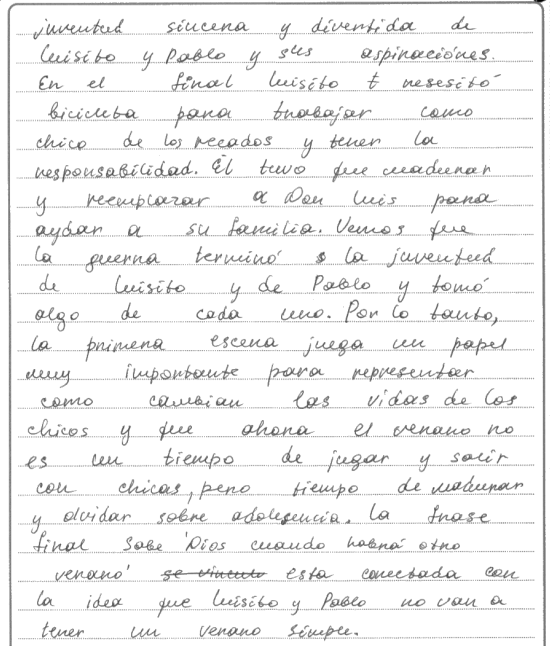 juventud sincera y divertida de
Luisito y Pablo y sus aspiraciónes.
En el final Luisito t nesesitó
bicicleta para trabajar como
chico de los recados y tener la
responsabilidad. Él tuvo que madurar
y reemplazar a Don Luis para
aydar a su familia. Vemos que
la guerra terminó la juventud
de Luisito y de Pablo y tomó
algo de cada uno. Por lo tanto,
la primera escena juega un papel
muy importante para representar
como cambian las vidas de los
chicos y que ahora el verano no
es un tiempo de jugar y salir
con chicas, pero tiempo de madurar
y olvidar sobre adolesencia. La frase
final Sabe 'Dios cuando habrá otro
verano' se vincuto esta conectada con
la idea que Luisito y Pablo no van a
tener un verano simple.